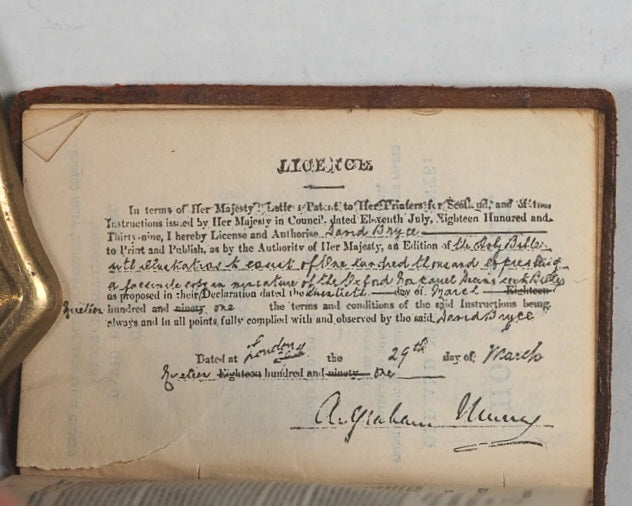 LICENCE.
In terms of Her Majesty's Letters Patent to Her Printers for Scotland, and of the
Instructions issued by Her Majesty in Council, dated Eleventh July, Eighteen Hundred and
Thirty-nine, I hereby License and Authorise David Bryce
to Print and Publish, as by the Authority of Her Majesty, an Edition of the Holy Bible
with illustrations to consist of One hundred thousand copies being
a facsimile copy in miniature of the Oxford Nonpareil Bible
as proposed in their Declaration dated the twentieth day of March Eighteen
Nineteen hundred and ninety one the terms and conditions of the said Instructions being
always and in all points fully complied with and observed by the said David Bryce
Dated at London the 29th day of March
Nineteen Eighteen hundred and ninety one
A. Graham Murray